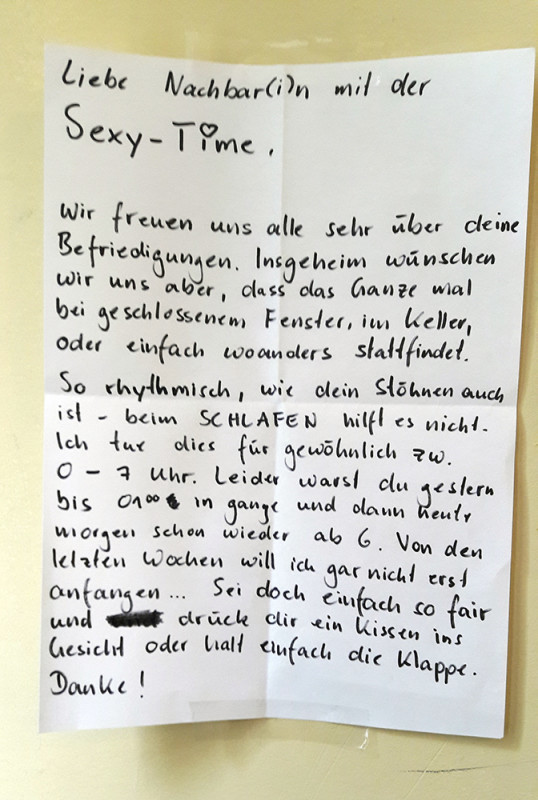 Liebe Nachbar(i)n mit der
Sexy-Time.
Wir freuen uns alle sehr über deine
Befriedigungen. Insgeheim wünschen
wir uns aber, dass das Ganze mal
bei geschlossenem Fenster, im Keller,
oder einfach woanders stattfindet.
So rhythmisch, wie dein Stöhnen auch
ist - beim SCHLAFEN hilft es nicht.
Ich tue dies für gewöhnlich zw.
0 - 7 Uhr. Leider warst du gestern
bis 01⁰⁰ in gange und dann heute
morgen schon wieder ab 6. Von den
letzten Wochen will ich gar nicht erst
anfangen... Sei doch einfach so fair
und drück dir ein Kissen ins
Gesicht oder halt einfach die Klappe.
Danke!